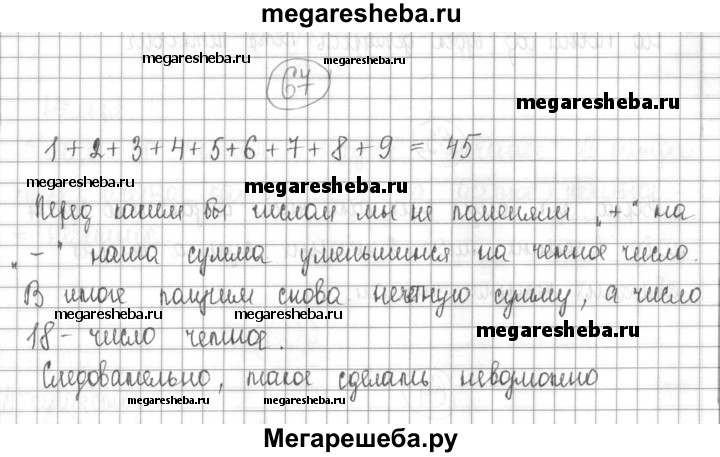 megaresheba.ru
megaresheba.ru megaresheba.ru
67
megaresheba.ru
1+2+3+4+5+6+7+8+9 = 45
megaresheba.ru megaresheba.ru
Перед каким бы числом мы не поменяли „+“ на
„-“ наша сумма уменьшится на четное число.
В итоге получим снова нечетную сумму, а число
megaresheba.ru megaresheba.ru
18 - число четное. megaresheba.ru
Следовательно, такое сделать невозможно
megaresheba.ru megaresheba.ru
Мегарешеба.ру